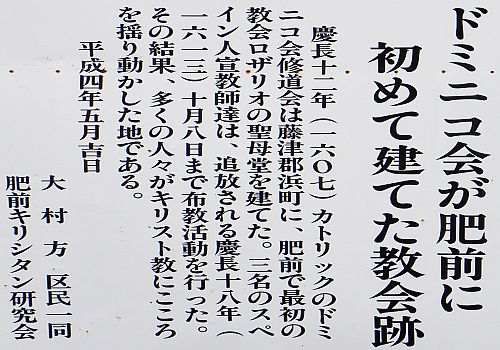 ドミニコ会が肥前に
初めて建てた教会跡
慶長十二年(一六〇七)カトリックのドミ
ニコ会修道会は藤津郡浜町に、肥前で最初の
教会ロザリオの聖母堂を建てた。三名のスペ
イン人宣教師達は、追放される慶長十八年(
一六一三)十月八日まで布教活動を行った。
その結果、多くの人々がキリスト教にこころ
を揺り動かした地である。
平成四年五月吉日
大村方区民一同
肥前キリシタン研究会